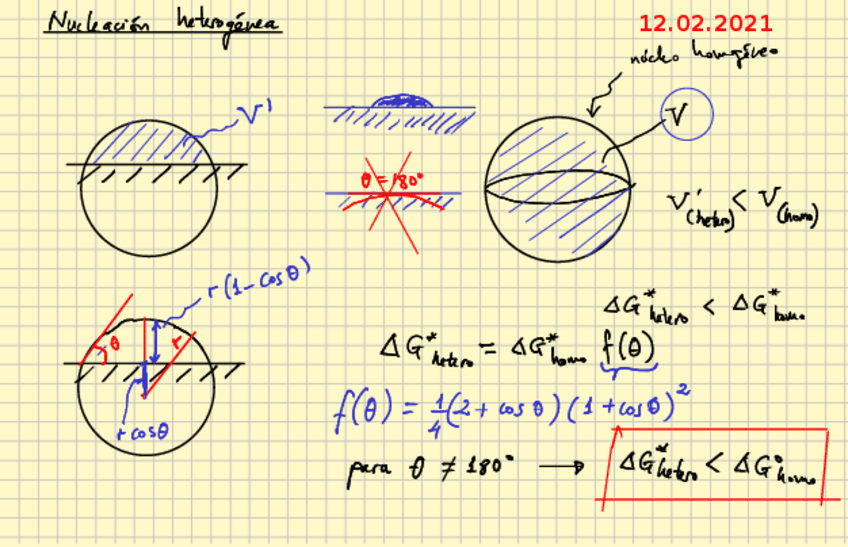 Nucleación heterogénea
12.02.2021
núcleo homogéneo
V'
V
θ = 180°
V'(hetero) < V(homo)
r(1-cosθ)
θ
r
r cosθ
ΔG*hetero < ΔG*homo
ΔG*hetero = ΔG*homo f(θ)
f(θ) = 1/4 (2 + cos θ) (1 + cosθ)²
para θ ≠ 180° → ΔG*hetero < ΔG°homo